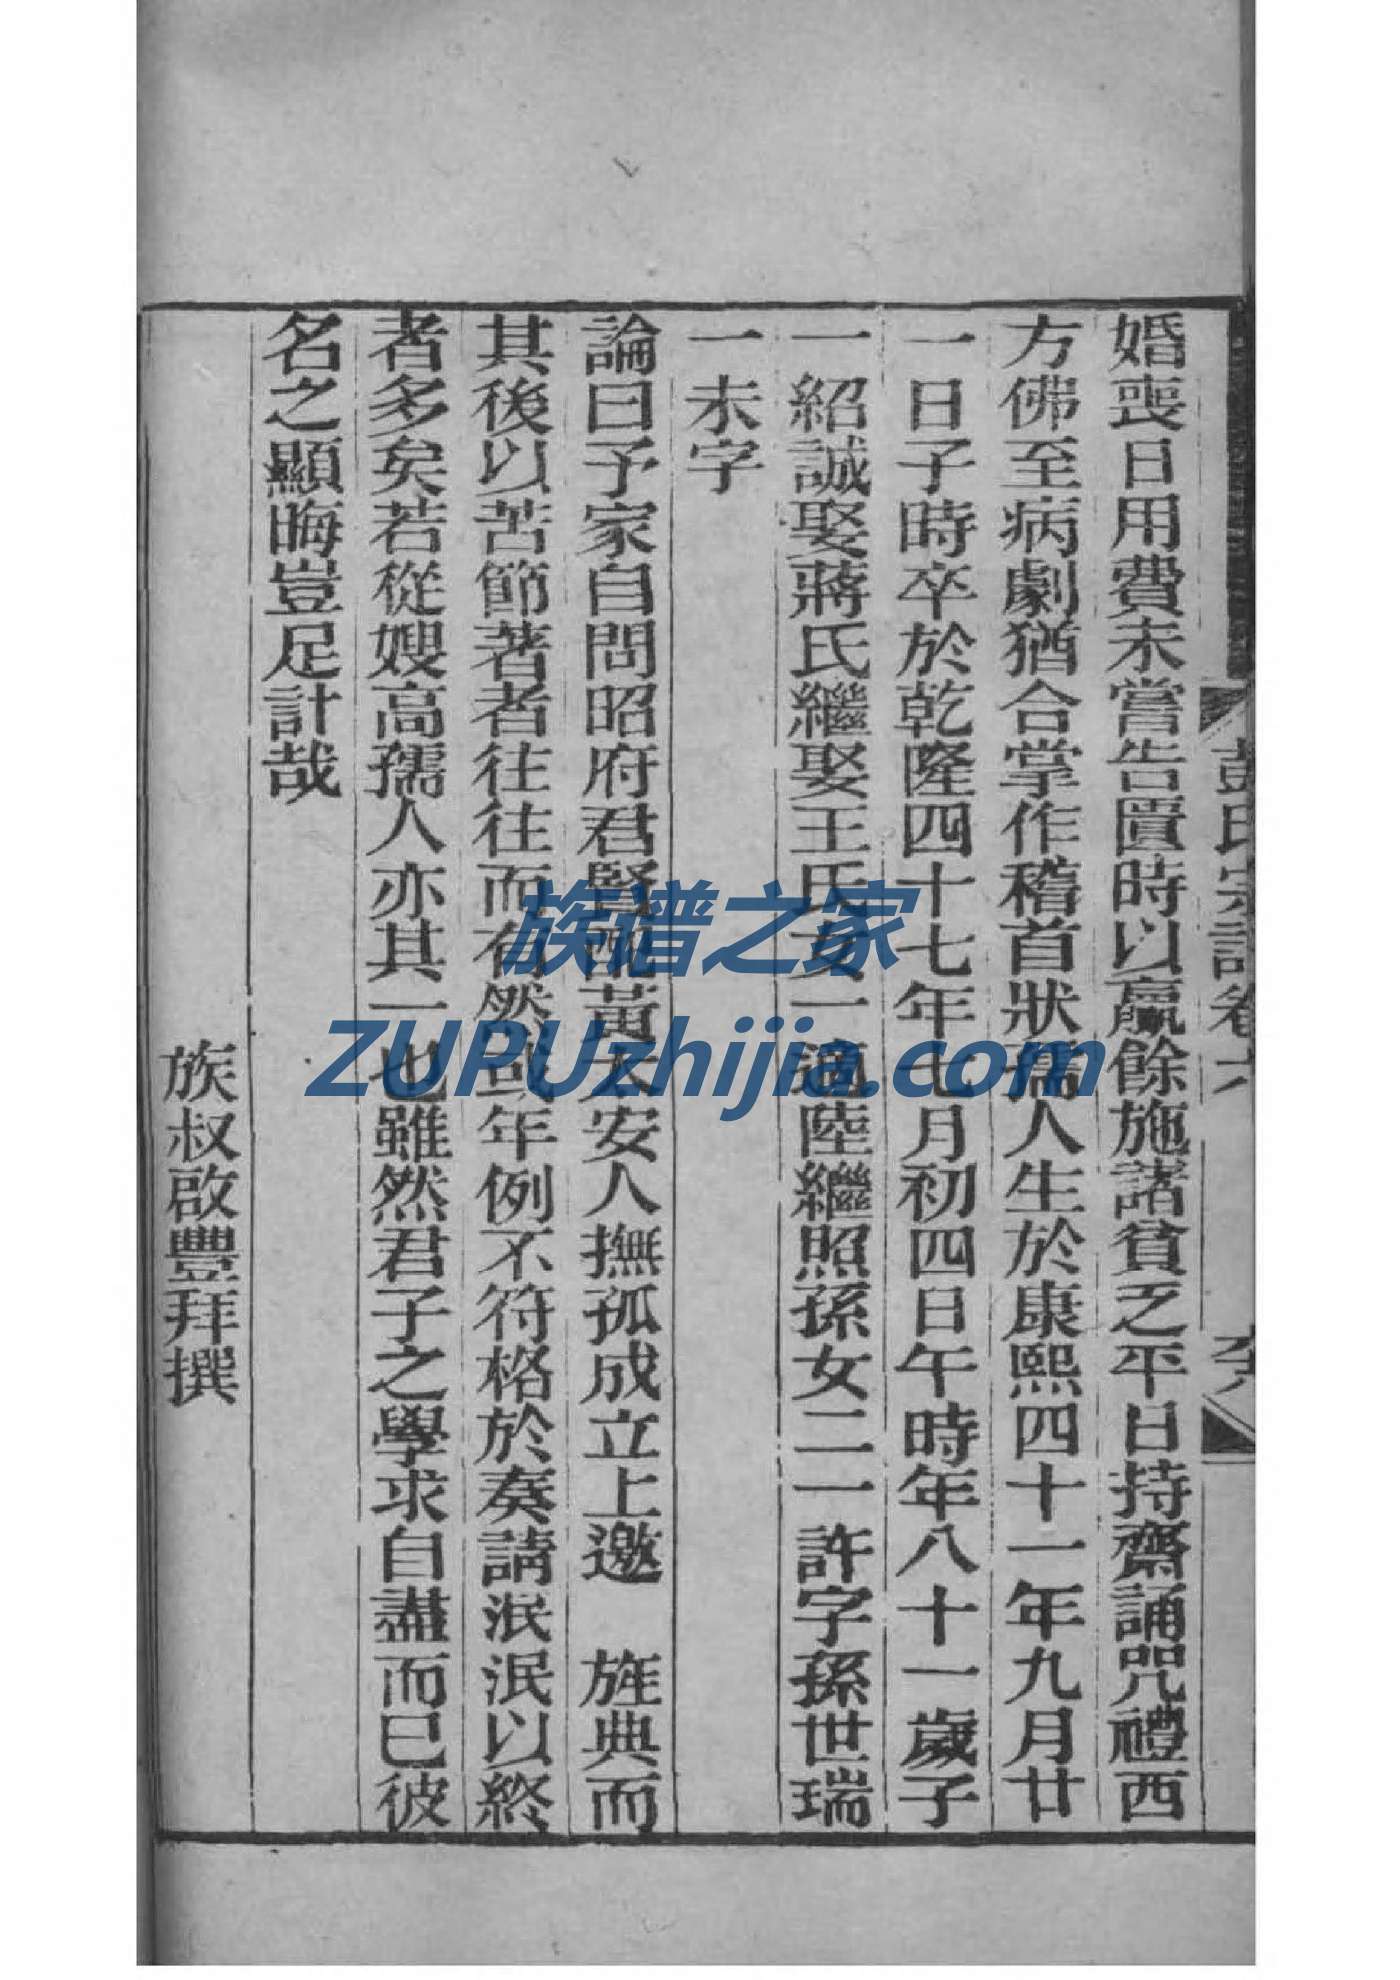 彭氏宗譜卷六
婚喪日用費未嘗告匱時以贏餘施諸貧乏平日持齋誦咒禮西
方佛至病劇猶合掌作稽首狀孺人生於康熙四十一年九月廿
一日子時卒於乾隆四十七年七月初四日午時年八十一歲子
一紹誠娶蔣氏繼娶王氏女一適陸繼照孫女二一許字孫世瑞
一未字
論曰予家自問昭府君賢配黃太安人撫孤成立上邀 旌典而
其後以苦節著者往往而有然或年例不符格於奏請泯泯以終
者多矣若從嫂高孺人亦其一也雖然君子之學求自盡而已彼
名之顯晦豈足計哉
族叔啟豐拜撰
族谱之家
ZUPUzhijia.com